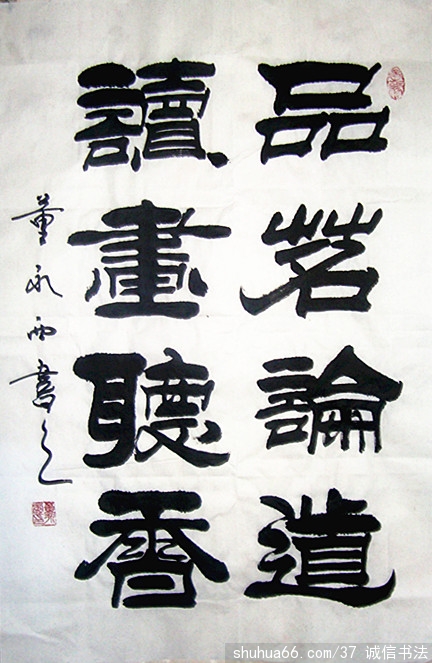 品茗論道
讀畫聽香
董永西書之
shuhua66.com/37 诚信书法